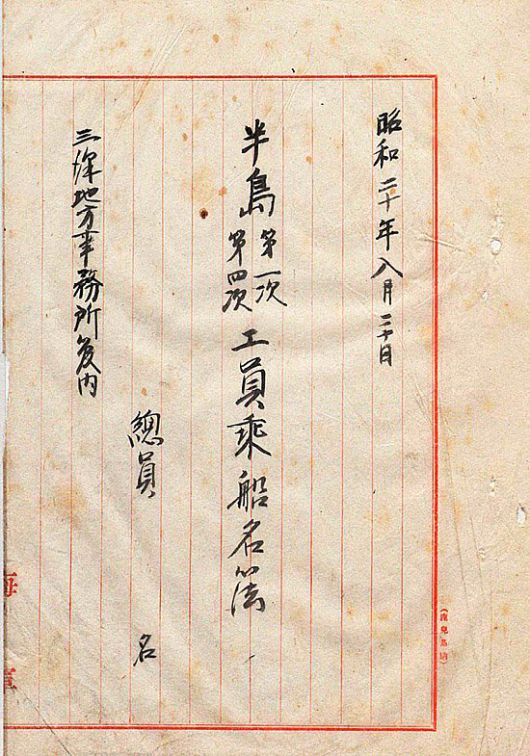 昭和二十年八月二十日
半島 第一次 第四次 工員乗船名簿
總員 名
地方事務所
海軍